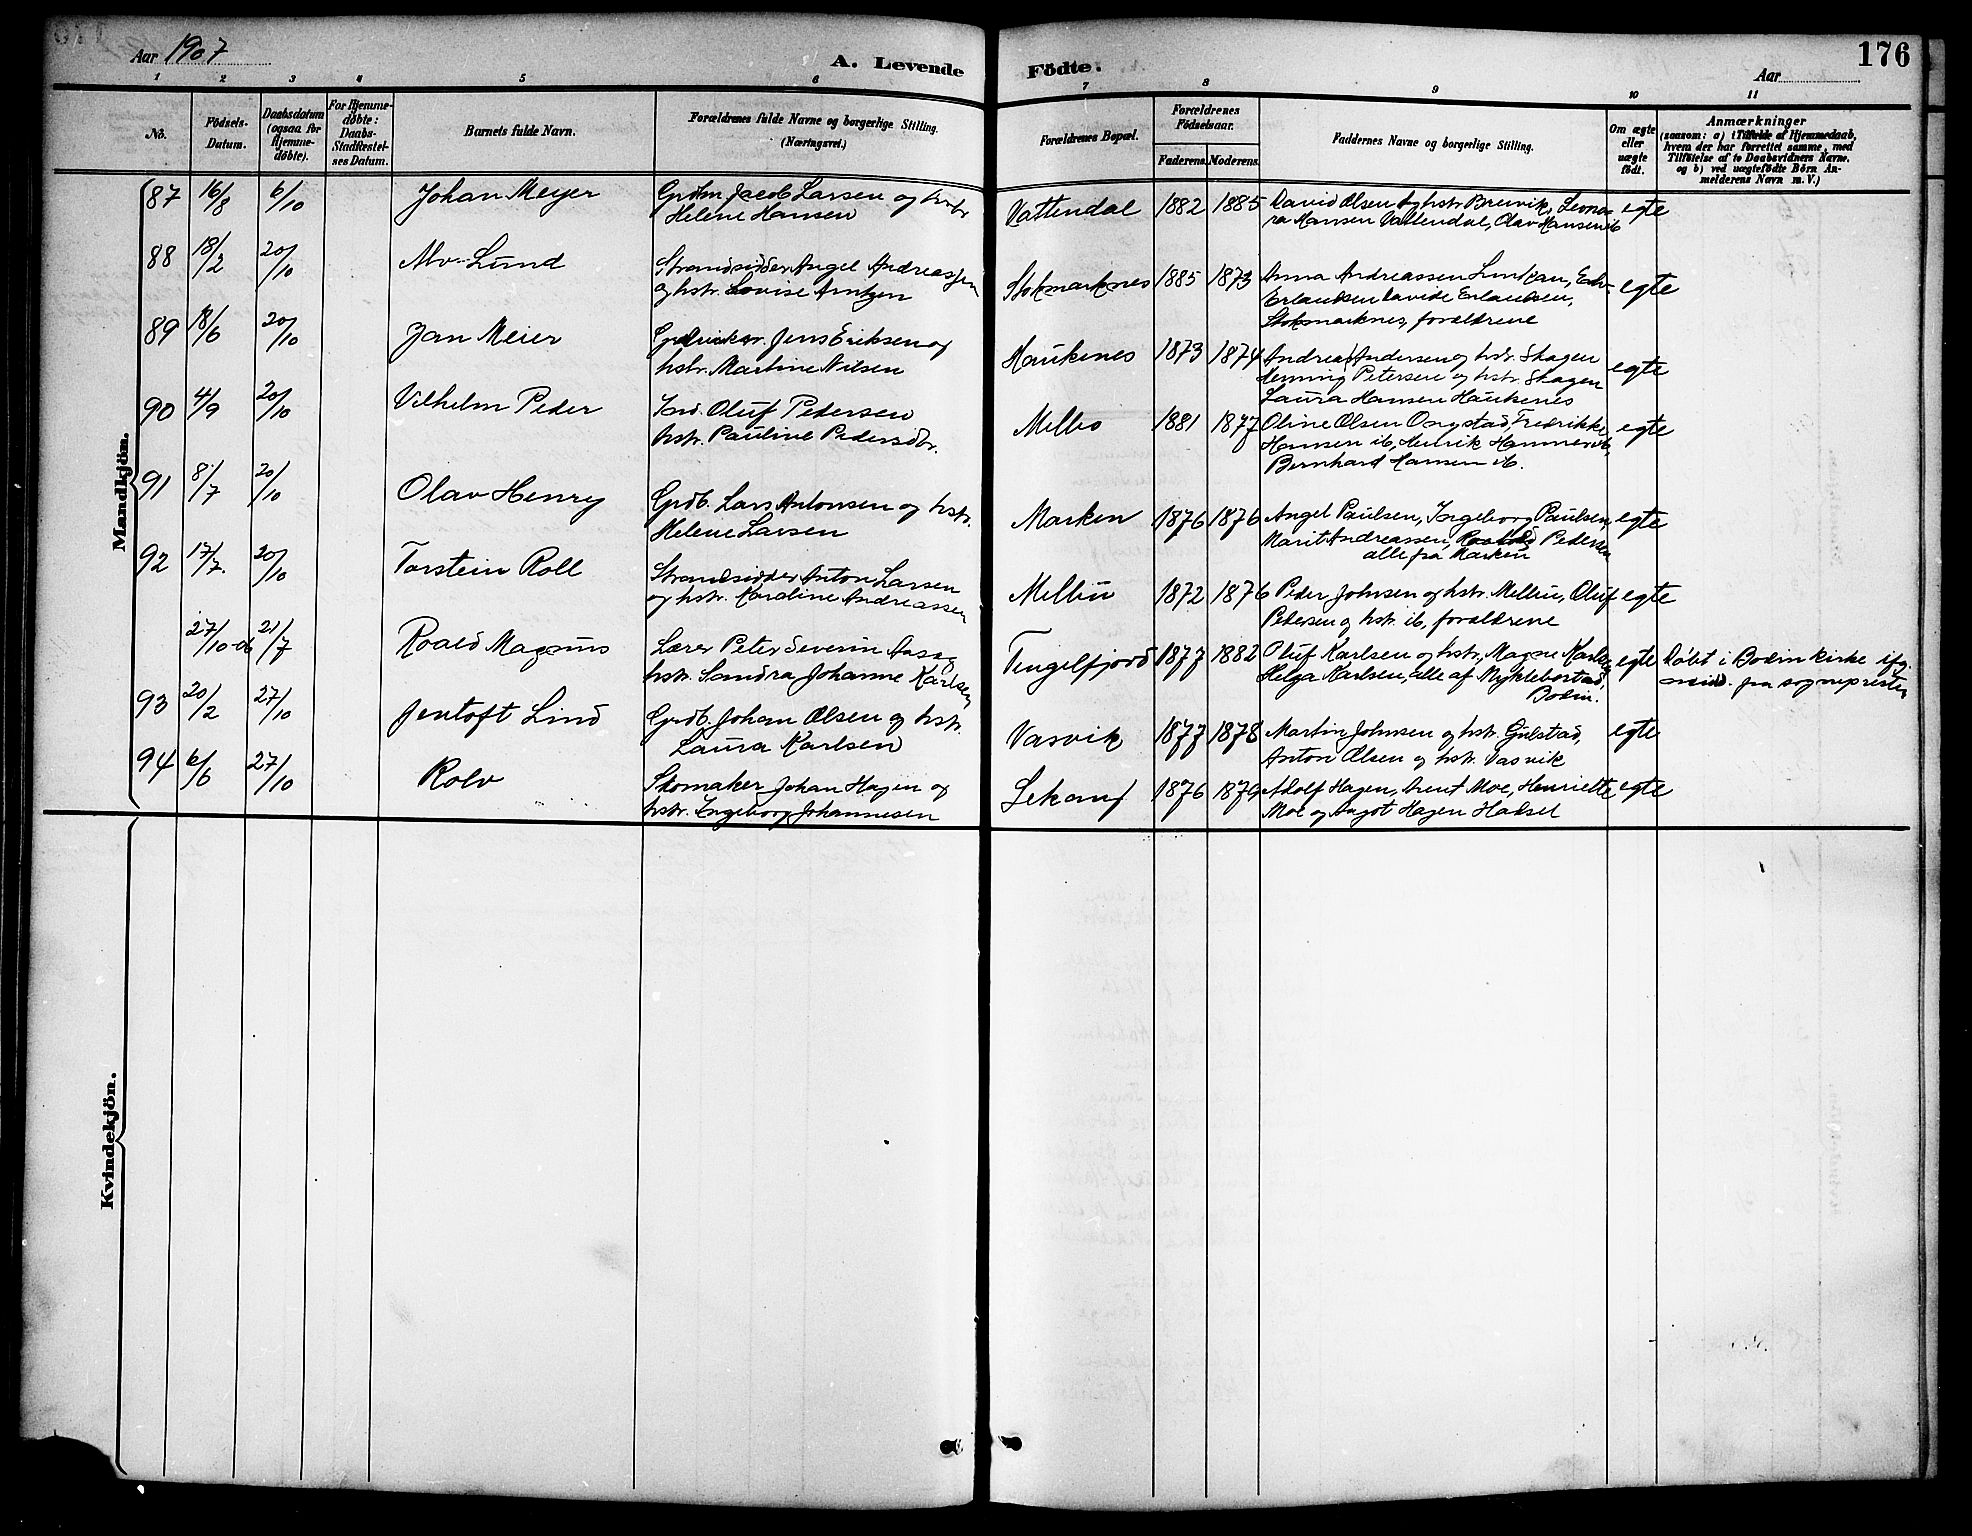 Aar 1907
A. Levende Födte.
Aar
176
1 2 3 4 5 6 7 8 9 10 11
No.
Födsels-Datum.
Daabsdatum (ogsaa for Hjemme-döbte).
For Hjemme-döbte: Daabs-Stadfæstel-ses Datum.
Barnets fulde Navn.
Forældrenes fulde Navne og borgerlige Stilling.
(Næringsvei.)
Forældrenes Bopæl.
Forældrenes Födselsaar.
Faderens. Moderens.
Faddernes Navne og borgerlige Stilling.
Om ægte eller uægte födt.
Anmærkninger
(saasom: a) i Tilfælde af Hjemmedaab, hvem der har forrettet samme, med Tilföielse af to Daabsvidners Navne. og b) ved uægtefödte Börn An-melderens Navn m. V.)
Mandkjön.
87 16/8 6/10 Johan Meyer Jacob Larsen og
Helene Hansen
Vattendal 1882 1885 David Olsen og hstr Breivik,
Hansen Vattendal, Olav Hansen ib
egte
88 18/2 20/10 Alv Lund Strandsidder Angel Andreassen
og hstr. Lovise Arntzen
Stokmarknes 1885 1873 Anna Andreassen
Erlandsen Davide Erlandsen,
Stokmarknes, forældrene
egte
89 18/6 20/10 Jan Meier Jens Eriksen og
hstr. Martine Nilsen
Haukenes 1873 1874 Andreas Andersen og hstr. Skagen
Henning Petersen og hstr. Skagen
Laura Hansen Haukenes
egte
90 4/9 20/10 Vilhelm Peder Ind. Oluf Pedersen
hstr. Pauline Pedersdtr.
Melbo 1881 1877 Oline Olsen Fredrikke
Hansen ib, Henrik Hammer ib,
Bernhard Hansen ib.
egte
91 8/7 20/10 Olav Henry Grdb. Lars Antonsen og hstr.
Helene Larsen
Marken 1876 1876 Angel Paulsen, Ingeborg Paulsen
Marit Andreassen, Pedersen
alle fra Marken
egte
92 17/7 20/10 Torstein Roll Strandsidder Anton Larsen
og hstr. Karoline Andreassen
Melbu 1872 1876 Peder Johnsen og hstr. Melbu, Oluf
Petersen og hstr. ib, forældrene
egte
27/10-06 21/7 Roald Magnus Lærer Peter Severin Aas og
hstr. Sandra Johanne Karlsen
Tengelfjord 1877 1882 Oluf Karlsen og hstr., Magne Karlsen
Helga Karlsen, alle af Myklebostad,
Bodin.
egte Døbt i Bodin kirke ifg.
meld. fra sognepresten
93 20/2 27/10 Jentoft Lind Grdb. Johan Olsen og hstr.
Laura Karlsen
Vasvik 1877 1878 Martin Johnsen og hstr. Gulstad,
Anton Olsen og hstr. Vasvik
egte
94 6/6 27/10 Rolv Skomaker Johan Hagen og
hstr. Ingeborg Johannesen
Lekang 1876 1879 Adolf Hagen, Arent Moe, Henriette
Moe og Aagot Hagen Hadsel
egte
Kvindekjön.